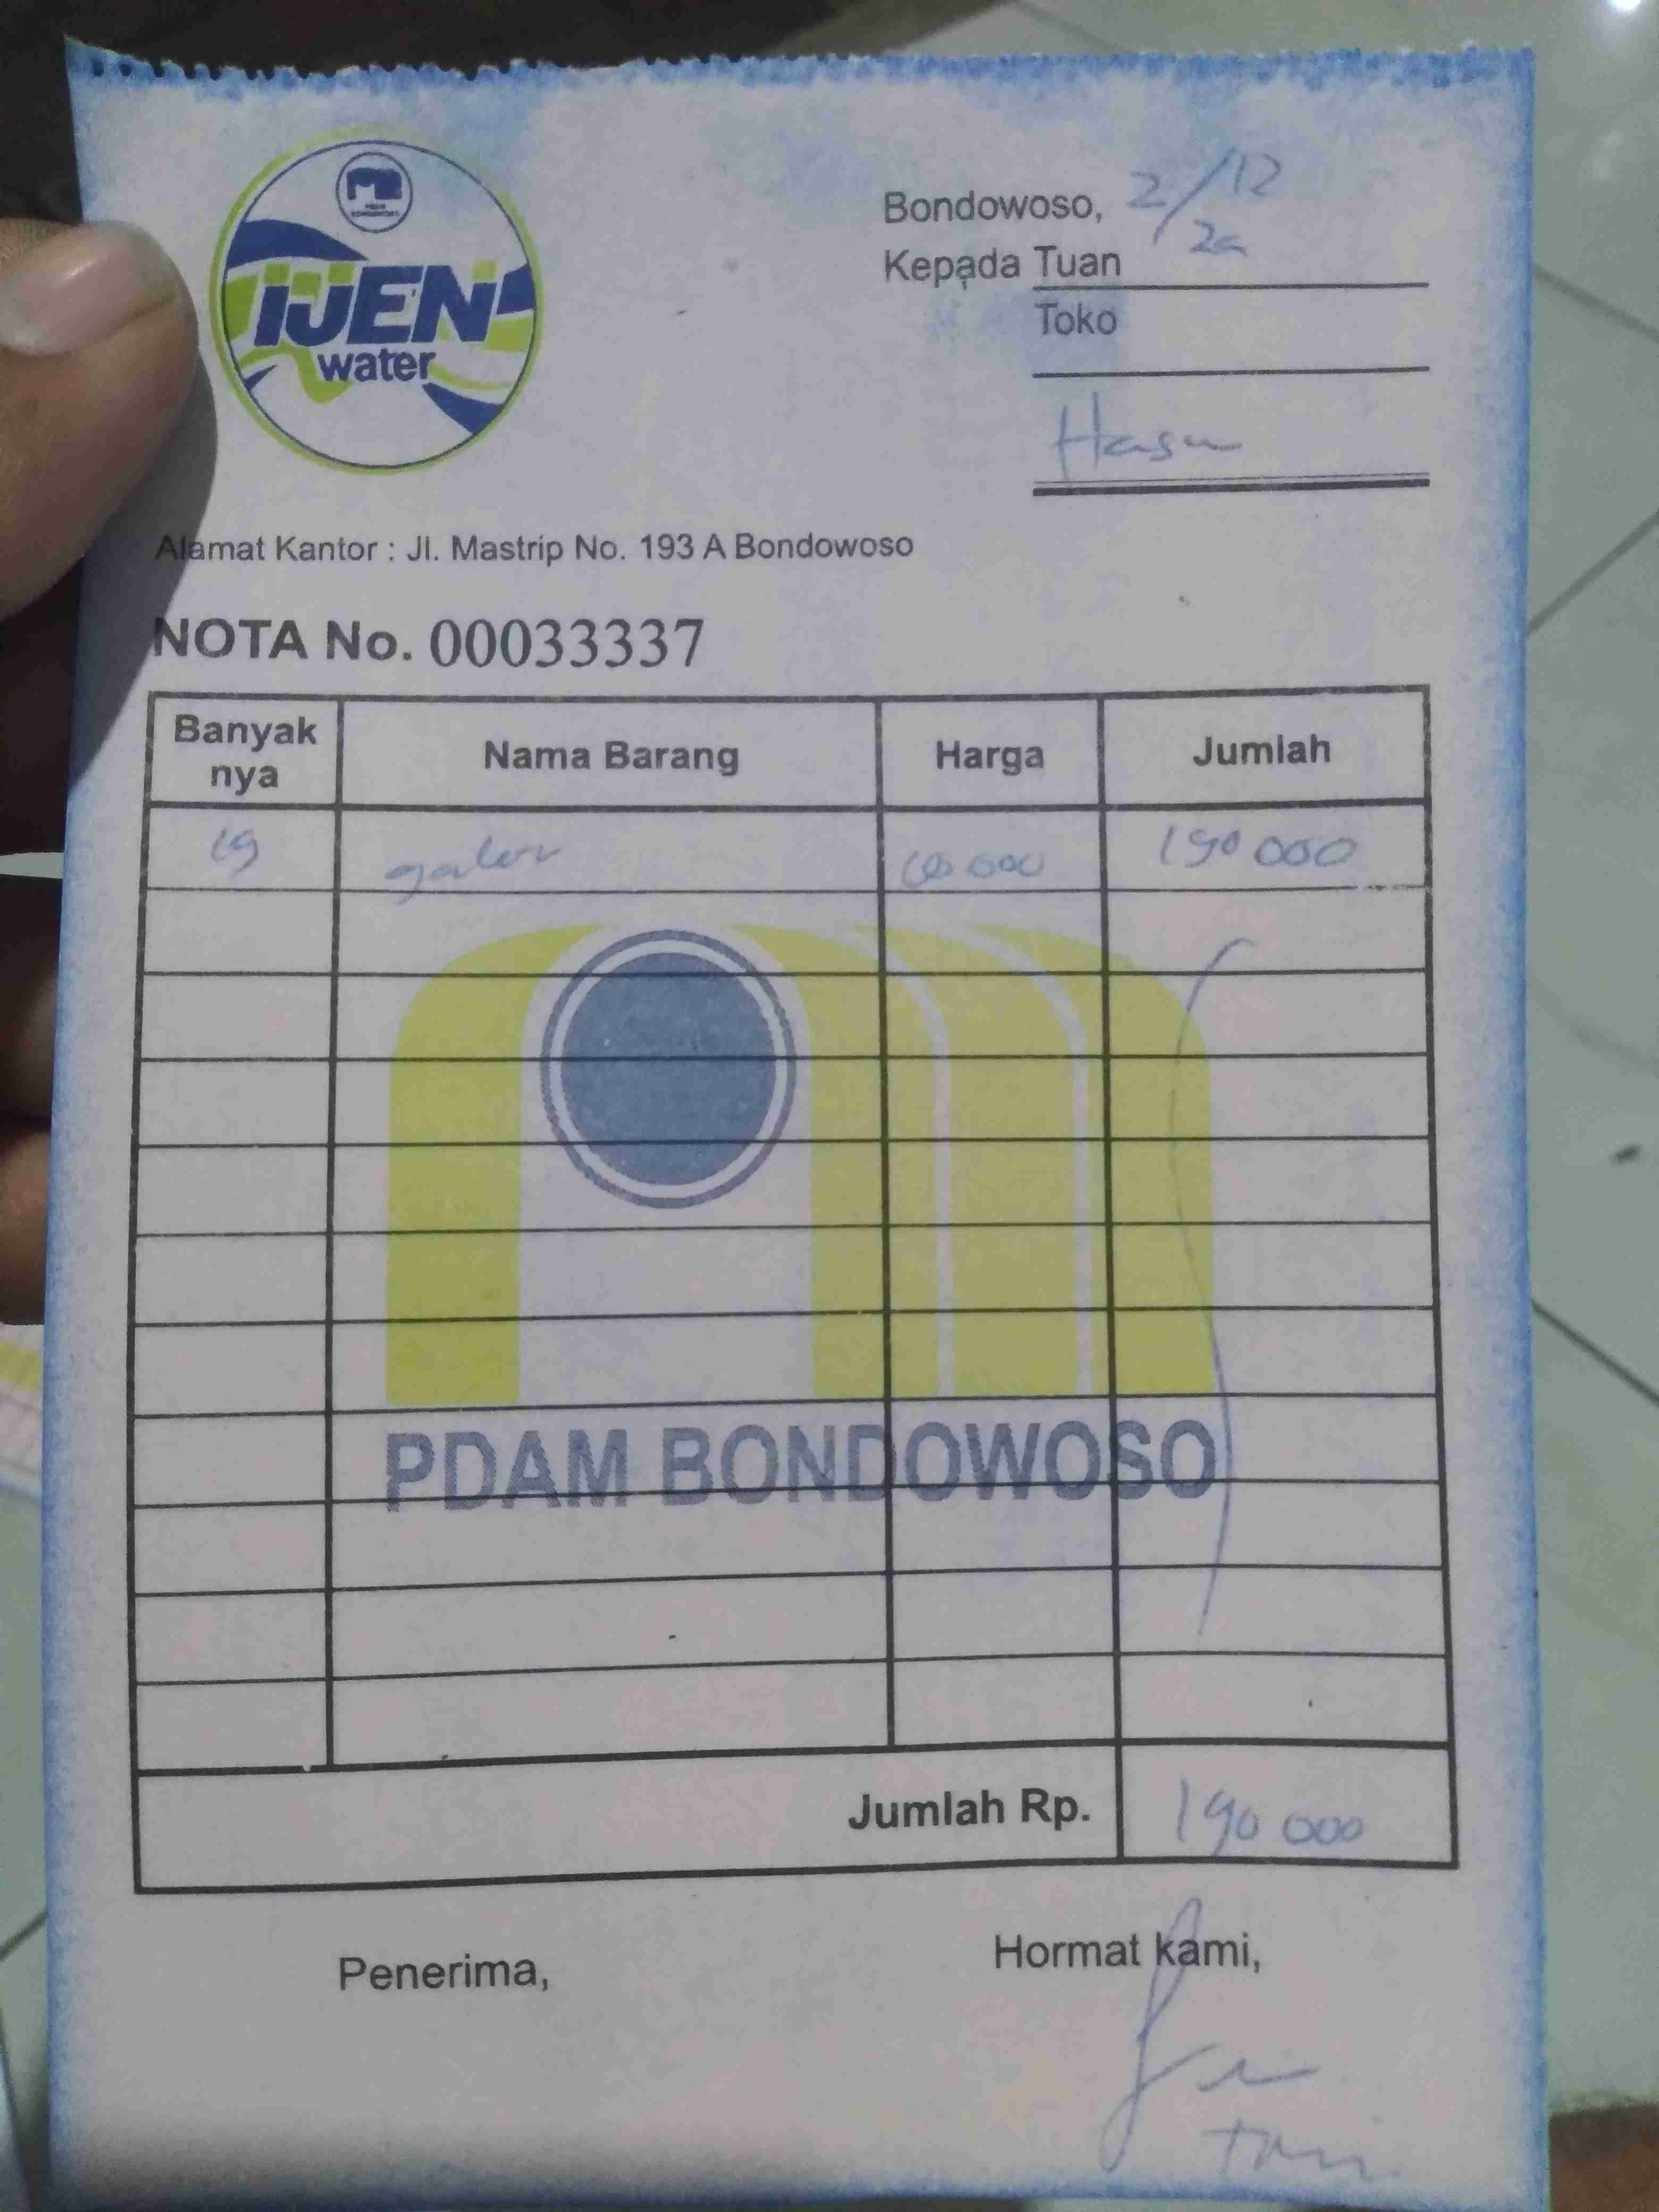 IJEN
water
Bondowoso, 2/12
Kepada Tuan
Toko
Alamat Kantor : Jl. Mastrip No. 193 A Bondowoso
NOTA No. 00033337
Banyak nya Nama Barang Harga Jumlah
19 galon 10 000 190 000
PDAM BONDOWOSO
Jumlah Rp. 190 000
Penerima, Hormat kami,